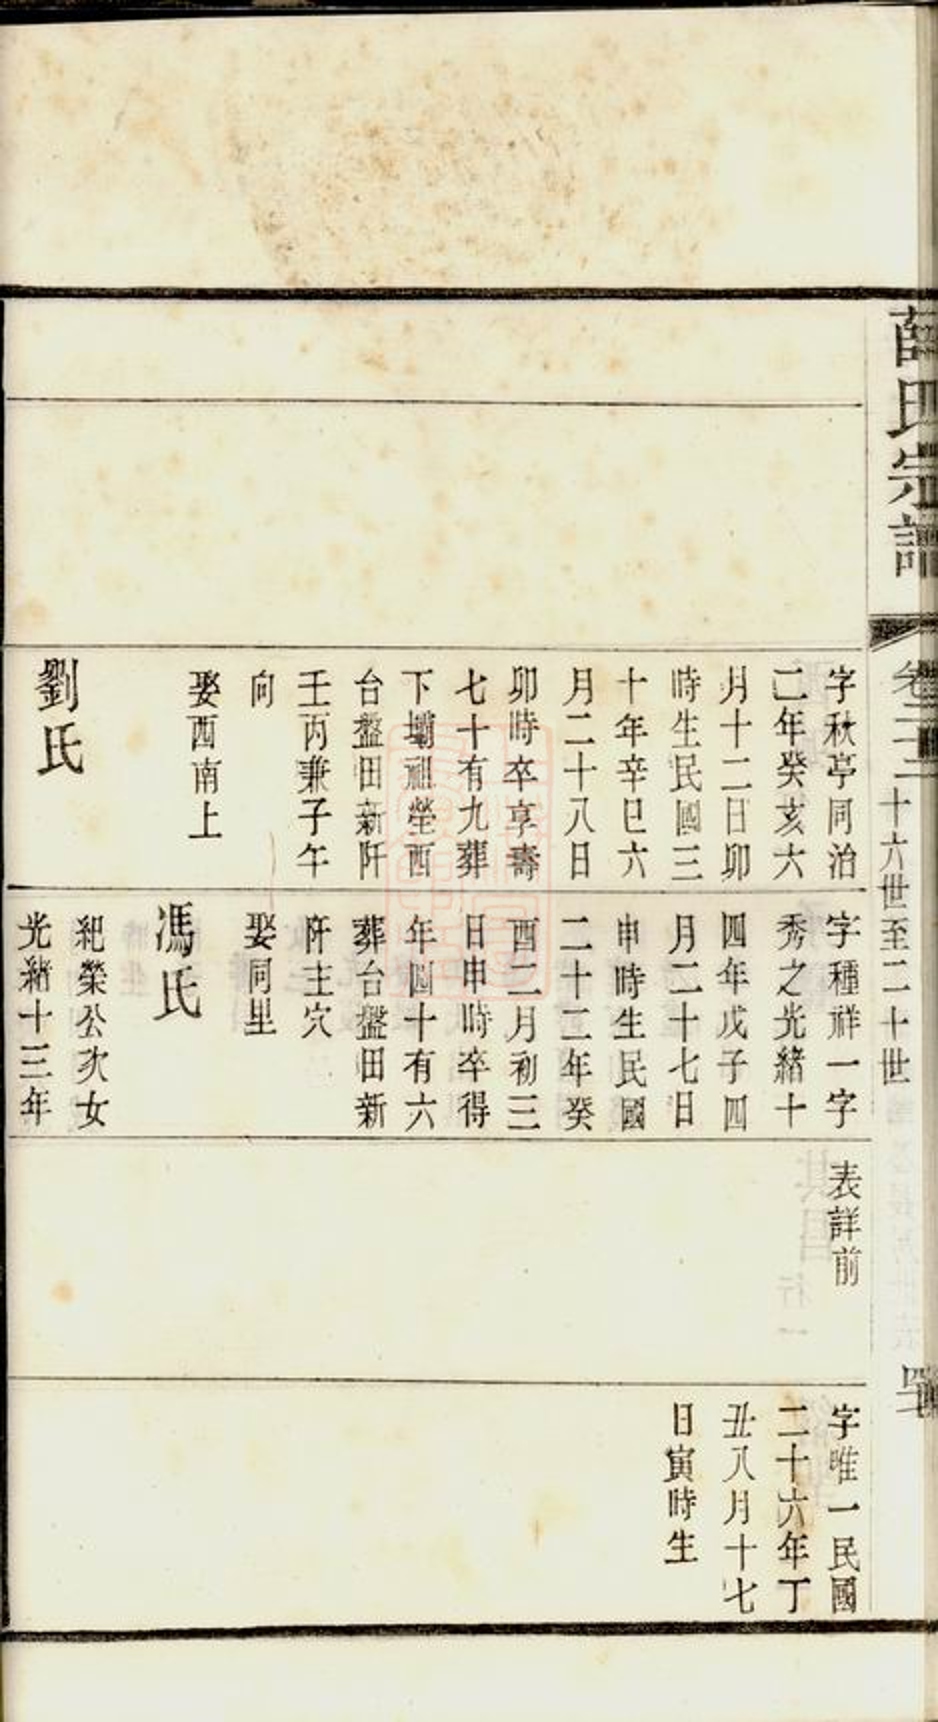 薛氏宗譜
卷三
十六世至二十世
字秋亭同治
二年癸亥六
月十二日卯
時生民國三
十年辛巳六
月二十八日
卯時卒享壽
七十有九葬
下壩祖塋西
台盤田新阡
壬丙兼子午
向
娶西南上
劉氏
字種祥一字
秀之光緒十
四年戊子四
月二十七日
申時生民國
二十二年癸
酉二月初三
日申時卒得
年四十有六
葬台盤田新
阡主穴
娶同里
馮氏
紀榮公次女
光緒十三年
表詳前
字唯一民國
二十六年丁
丑八月十七
日寅時生